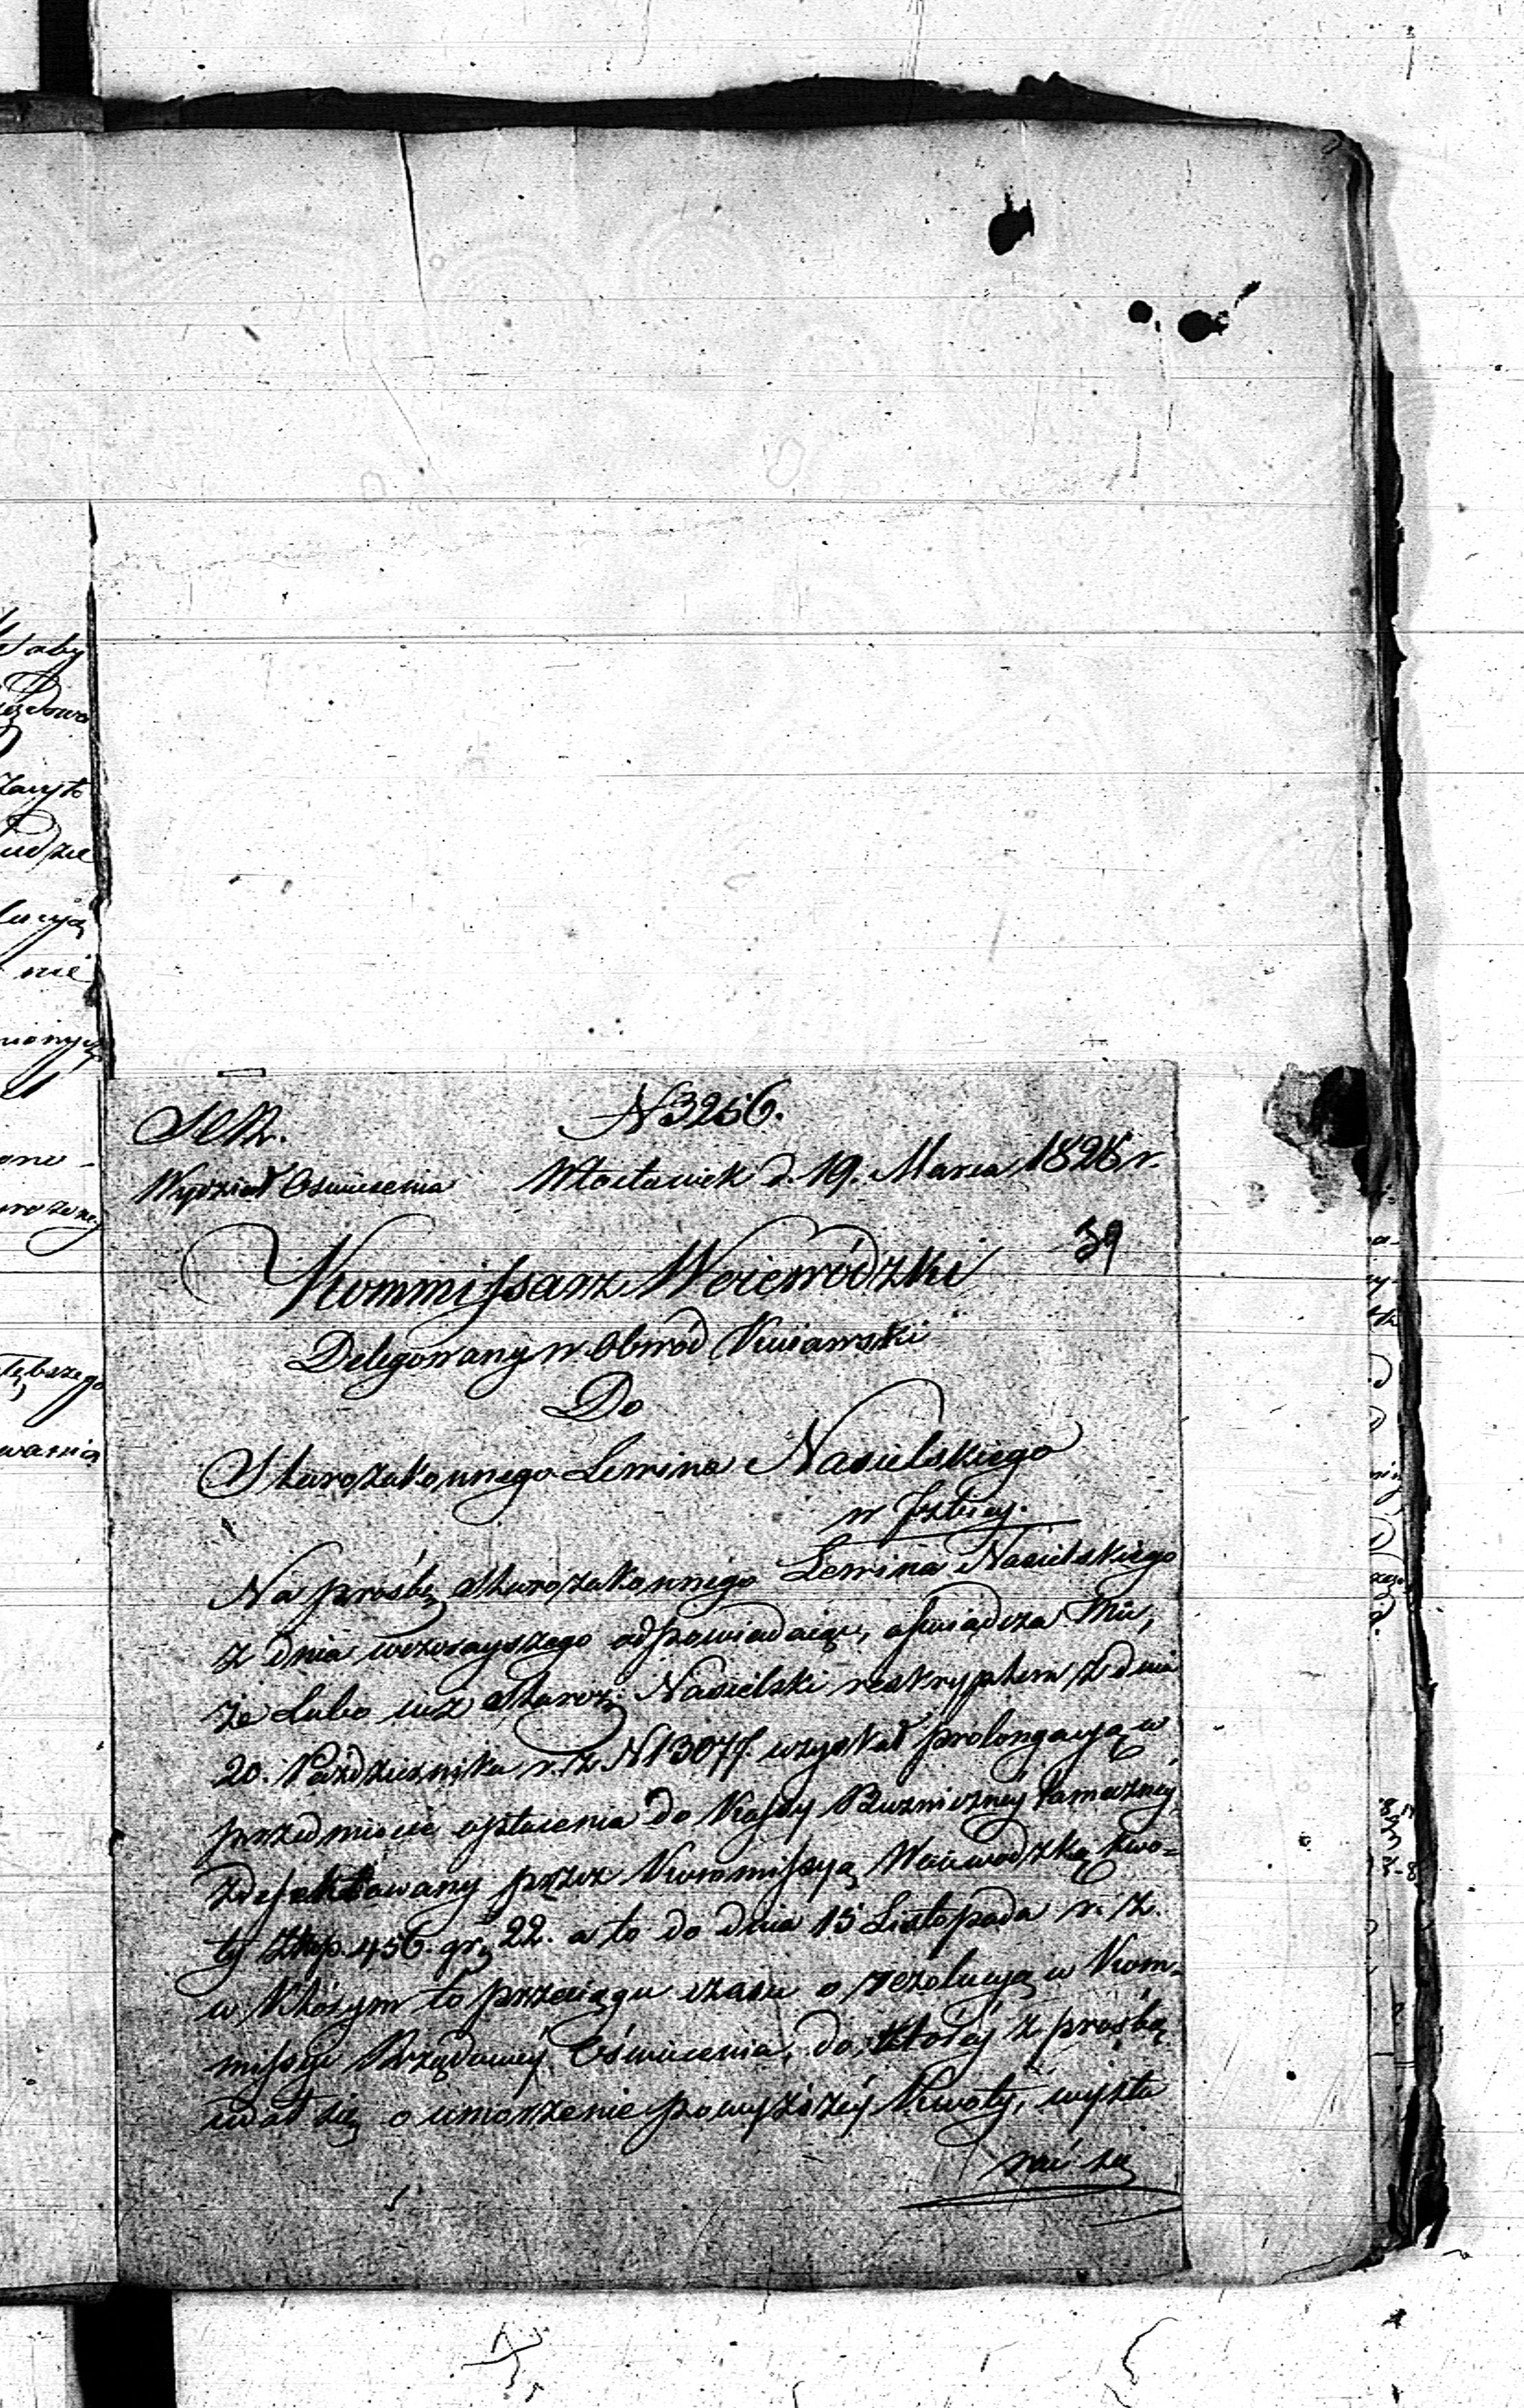 N 3256.
Wydział Oświecenia Włocławek d. 19. Marca 1828 r.
39
Kommissarz Woiewódzki
Delegowany w Obwód Kuiawski
Do
Starozakonnego Lewina Nasielskiego
w Izbicy.
Na prośbę Starozakonnego Lewina Nasielskiego
z dnia wczorayszego odpowiadaiąc, oświadcza Mu,
że lubo iuż Staroz: Nasielski reskryptem z dnia
20. Października r. z. N 13077. uzyskał prolongacyą w
przedmiocie opłacenia do Kassy Bużniczney tameczney
zdefektowany przez Kommissyą Woiewodzką kwo=
ty Złtp. 456. gr. 22. a to do dnia 15 Listopada r. z.
w którym to przeciągu czasu o rezolucyą w Kom=
missyi Rządowey Oświecenia, do którey z prośbą
udał się o umorzenie powyższey Kwoty, wysta
rać się
aby
nie